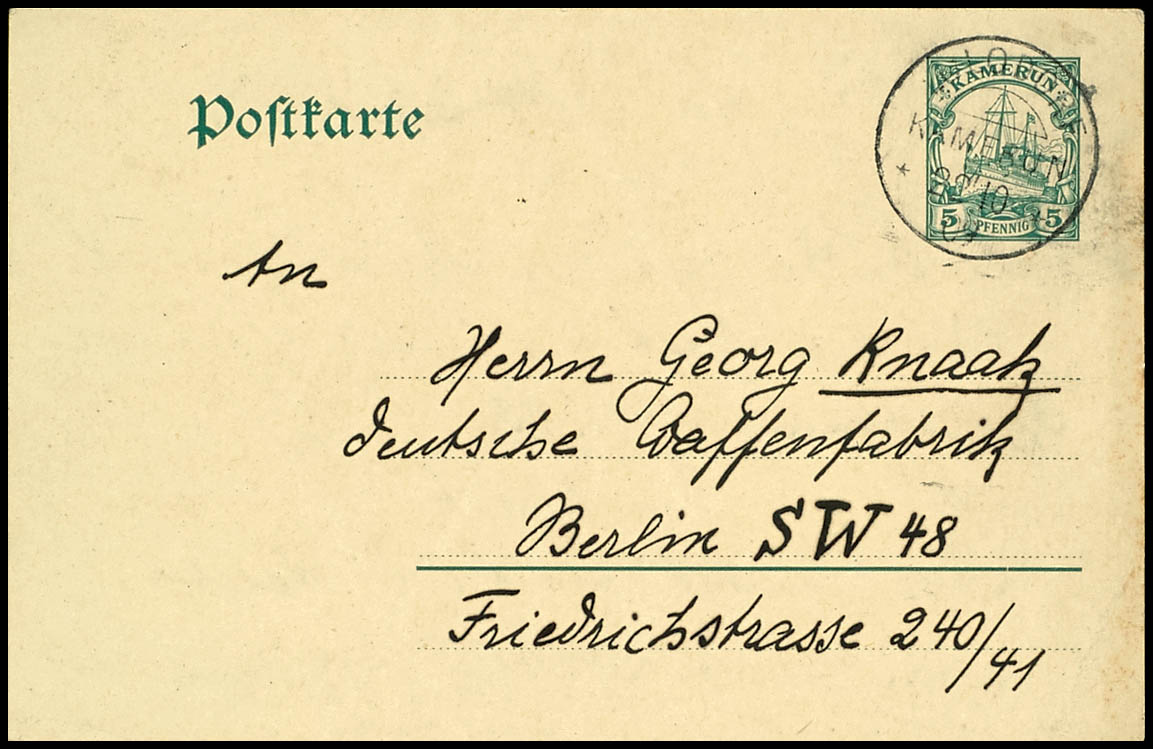 Postkarte
KAMERUN
KAMERUN
5 PFENNIG 5
An
Herrn Georg Knaak
Deutsche Waffenfabrik
Berlin SW 48
Friedrichstrasse 240/41